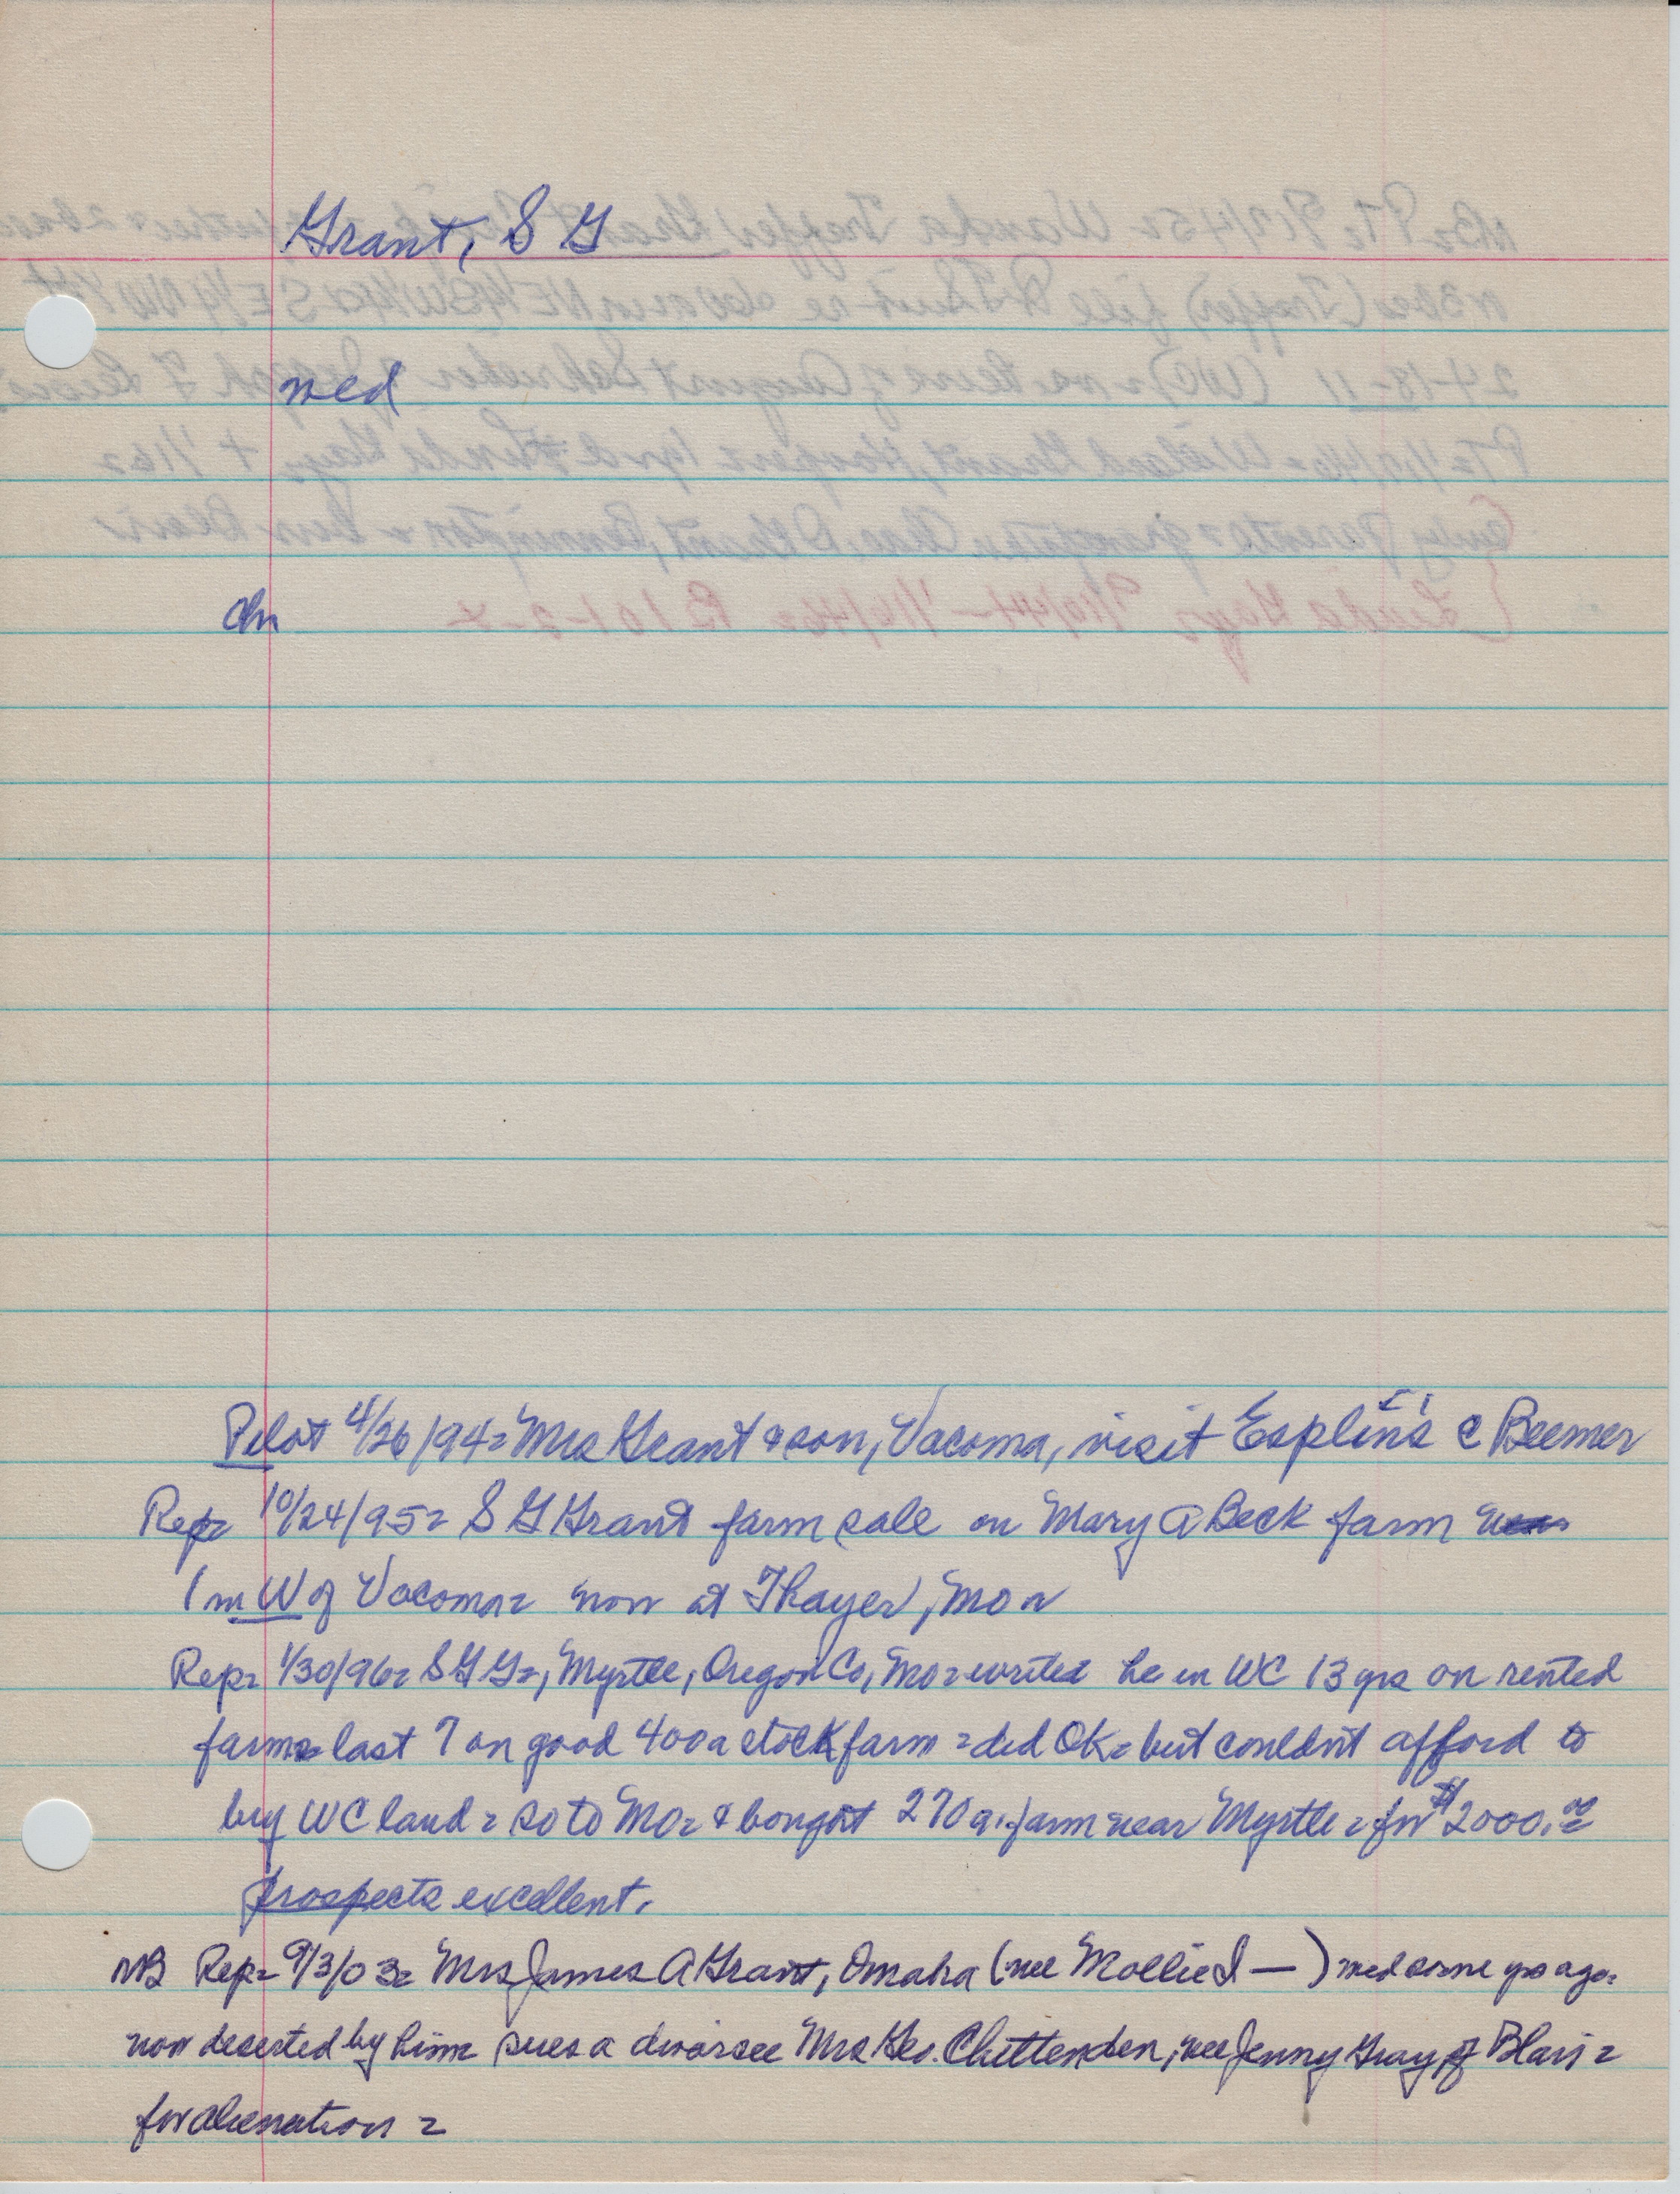 Grant, S G
med
chn
Pilot 4/26/94= Mrs Grant & son, Vacoma, visit Esplin's @ Beemer
Rep= 10/24/95= S G Grant farm sale on Mary A Beck farm
1 m W of Vacoma= now at Thayer, Mo=
Rep= 1/30/96= S G G=, Myrtle, Oregon Co, Mo= writes he in WC 13 yrs on rented
farms= last 7 on good 400a stock farm = did OK= but couldn't afford to
buy WC land = so to Mo= & bought 270 a. farm near Myrtle = for $2000.00
prospects excellent.
NB Rep= 9/3/03= Mrs James A Grant, Omaha (nee Mollie I — ) med some yrs ago=
now deserted by him= sues a divorsee Mrs Geo. Chittenden, nee Jenny Gray, of Blair =
for alienation =